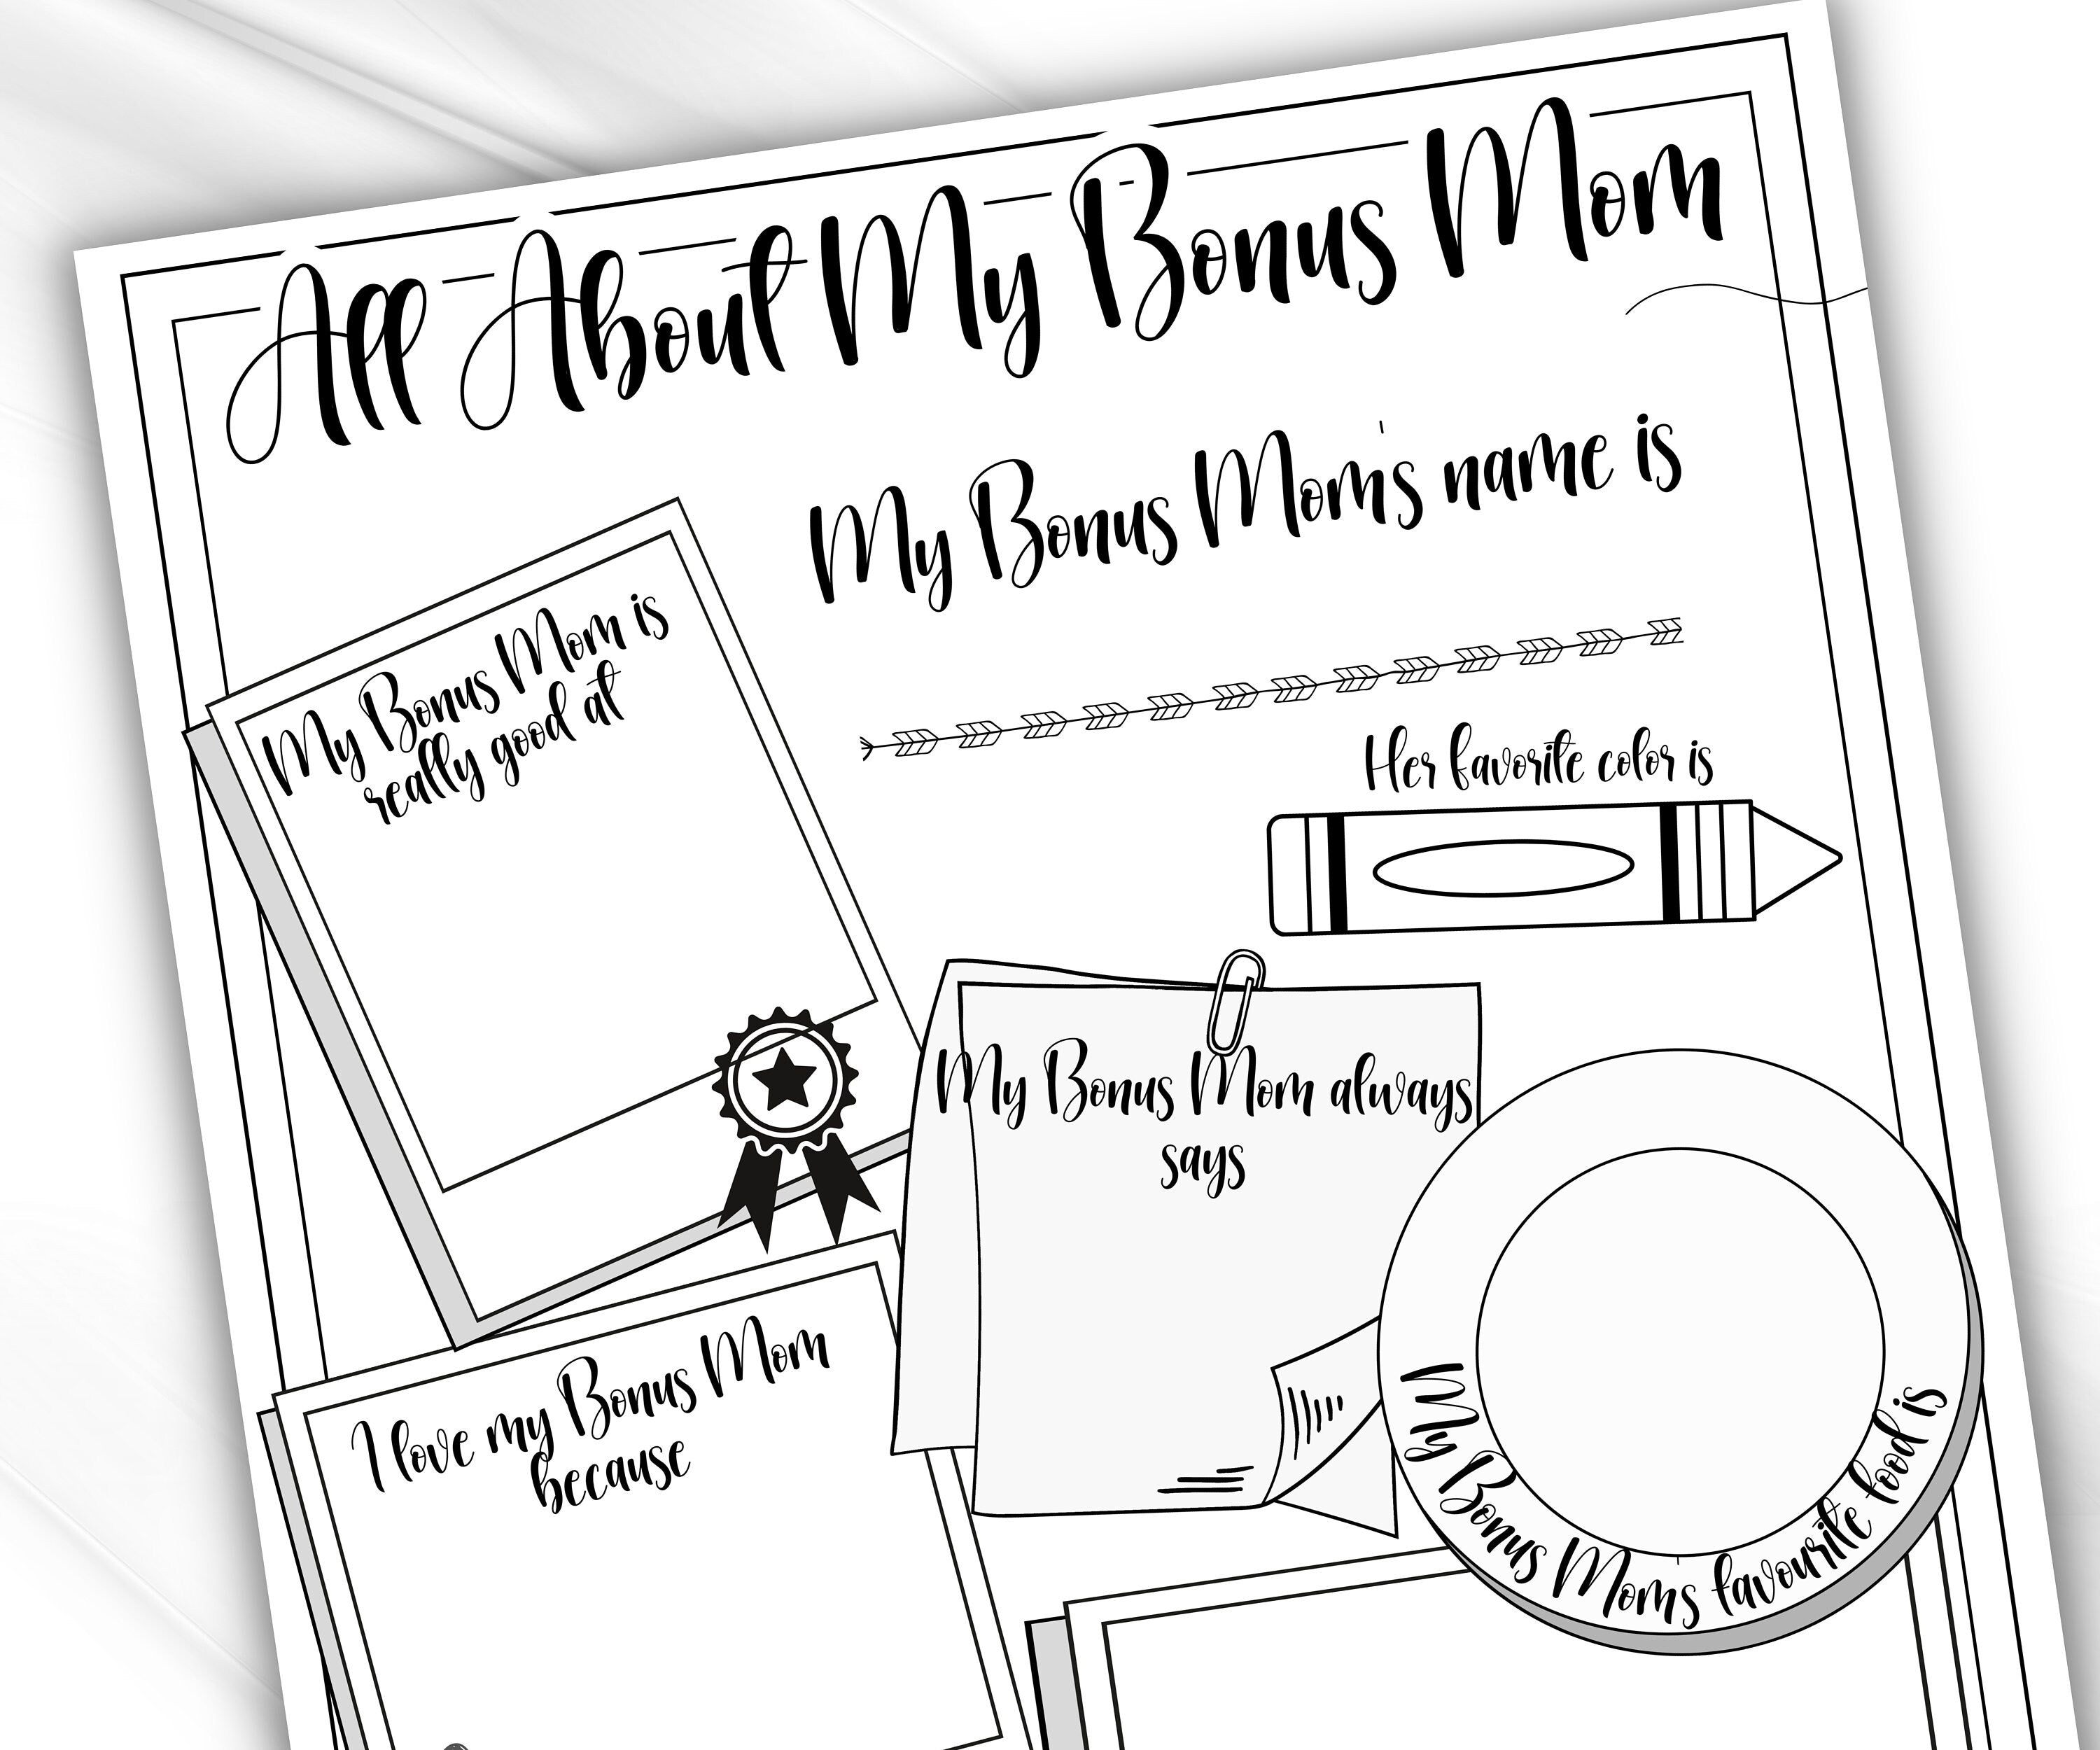 All About My Bonus Mom
My Bonus Mom's name is
My Bonus Mom is
really good at
Her favorite color is
My Bonus Mom always
says
I love my Bonus Mom
because
My Bonus Mom's favourite food is